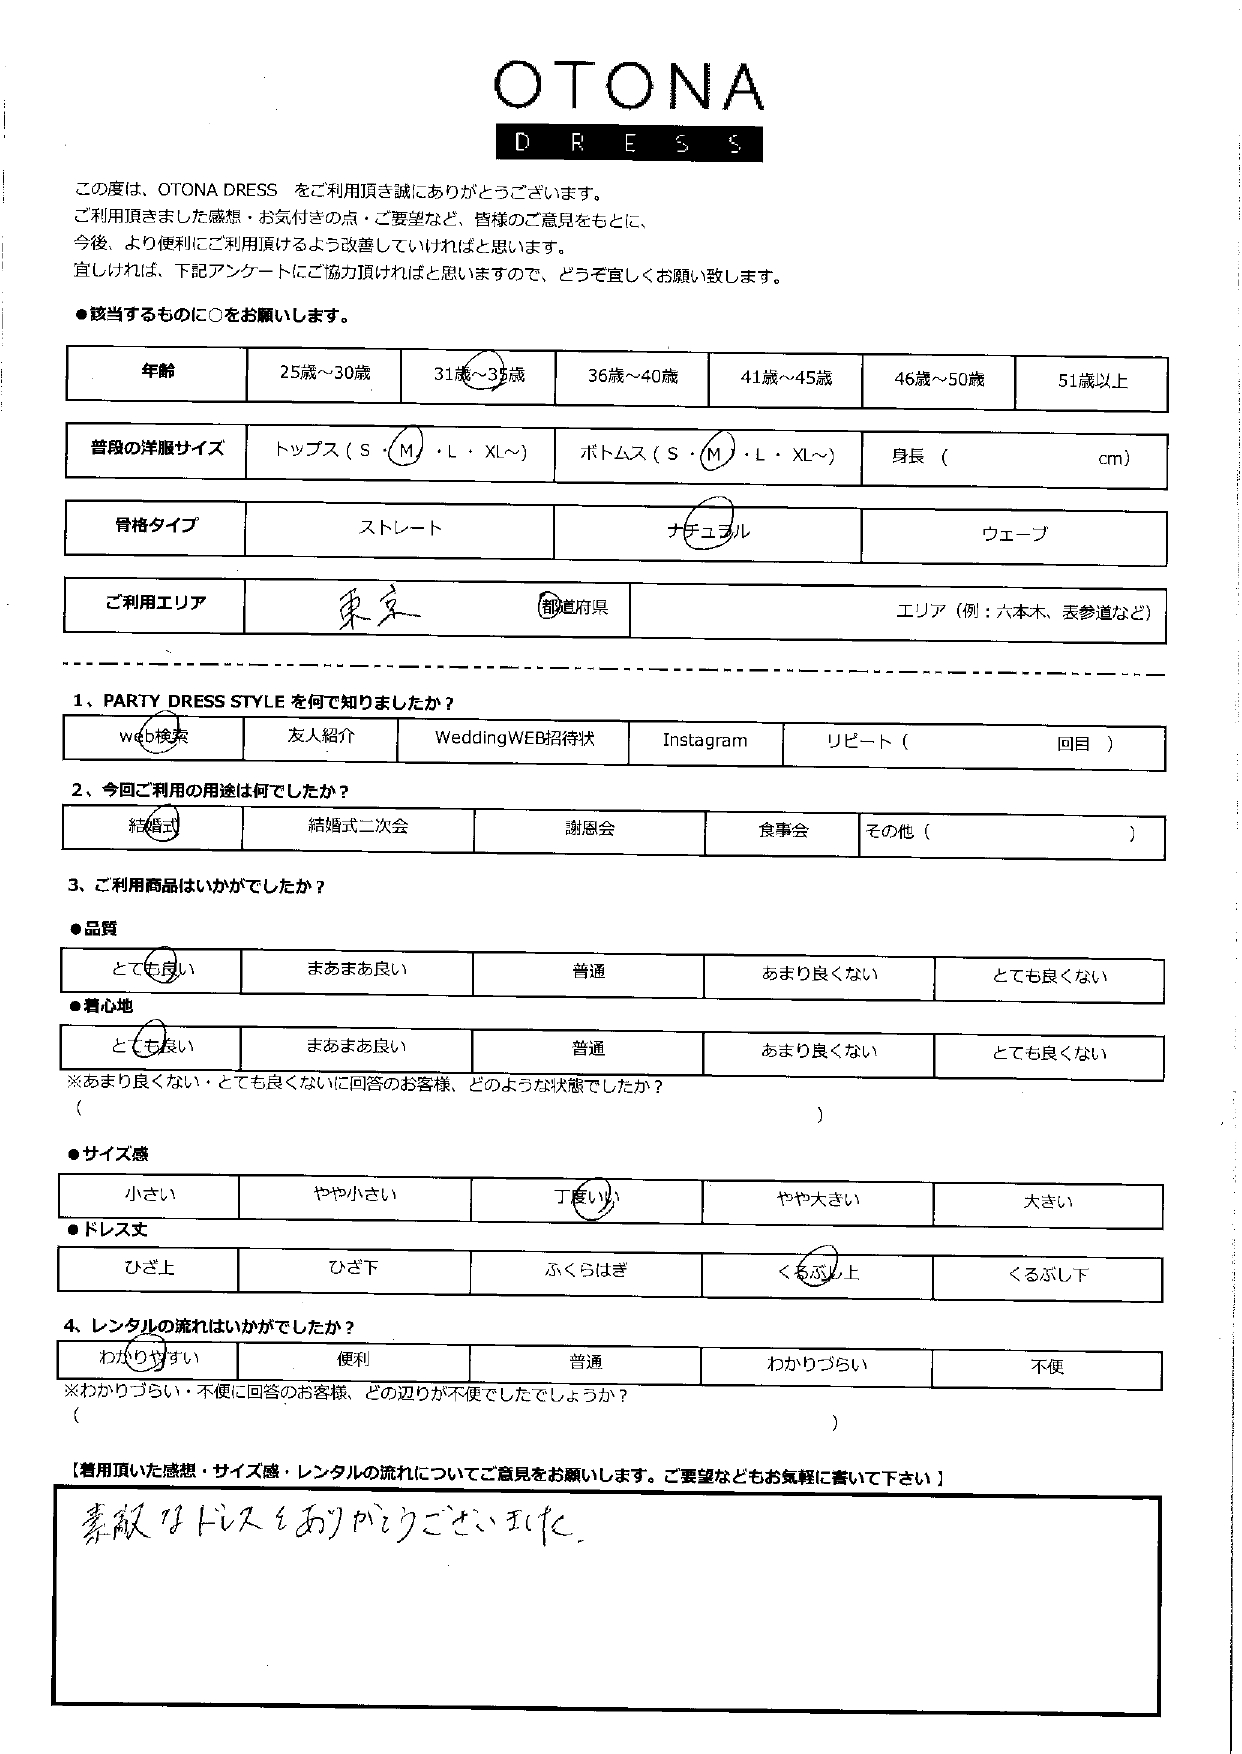 OTONA
DRESS
この度は、OTONA DRESS をご利用頂き誠にありがとうございます。
ご利用頂きました感想・お気付きの点・ご要望など、皆様のご意見をもとに、
今後、より便利にご利用頂けるよう改善していければと思います。
宜しければ、下記アンケートにご協力頂ければと思いますので、どうぞ宜しくお願い致します。
●該当するものに○をお願いします。
年齢 25歳～30歳 31歳～35歳 36歳～40歳 41歳～45歳 46歳～50歳 51歳以上
普段の洋服サイズ トップス ( S ・ M ・ L ・ XL～) ボトムス ( S ・ M ・ L ・ XL～) 身長 ( cm)
骨格タイプ ストレート ナチュラル ウェーブ
ご利用エリア 東京 都道府県 エリア（例：六本木、表参道など）
1、PARTY DRESS STYLE を何で知りましたか？
web検索 友人紹介 WeddingWEB招待状 Instagram リピート ( 回目 )
2、今回ご利用の用途は何でしたか？
結婚式 結婚式二次会 謝恩会 食事会 その他 ( )
3、ご利用商品はいかがでしたか？
●品質
とても良い まあまあ良い 普通 あまり良くない とても良くない
●着心地
とても良い まあまあ良い 普通 あまり良くない とても良くない
※あまり良くない・とても良くないに回答のお客様、どのような状態でしたか？
( )
●サイズ感
小さい やや小さい 丁度いい やや大きい 大きい
●ドレス丈
ひざ上 ひざ下 ふくらはぎ くるぶし上 くるぶし下
4、レンタルの流れはいかがでしたか？
わかりやすい 便利 普通 わかりづらい 不便
※わかりづらい・不便に回答のお客様、どの辺りが不便でしたでしょうか？
( )
【着用頂いた感想・サイズ感・レンタルの流れについてご意見をお願いします。ご要望などもお気軽に書いて下さい】
素敵なドレスをありがとうございました。